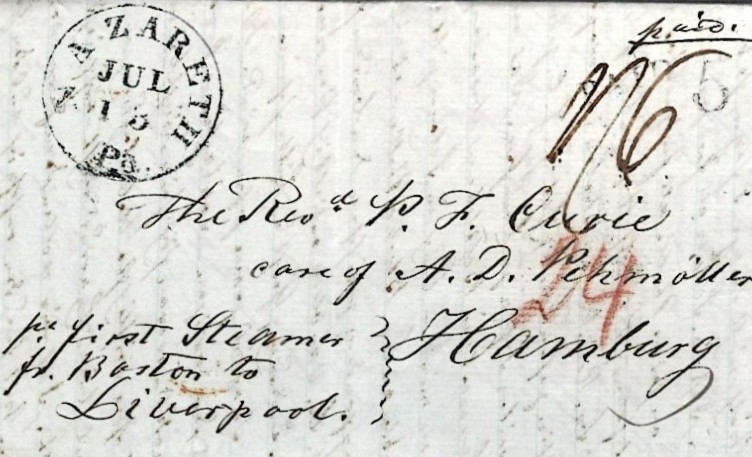 paid.
NAZARETH
JUL
15
Pa.
5
The Revd. P. F. Curie
care of A. D. Pehmöller
24
Hamburg
pr. first Steamer
fr. Boston to
Liverpool.